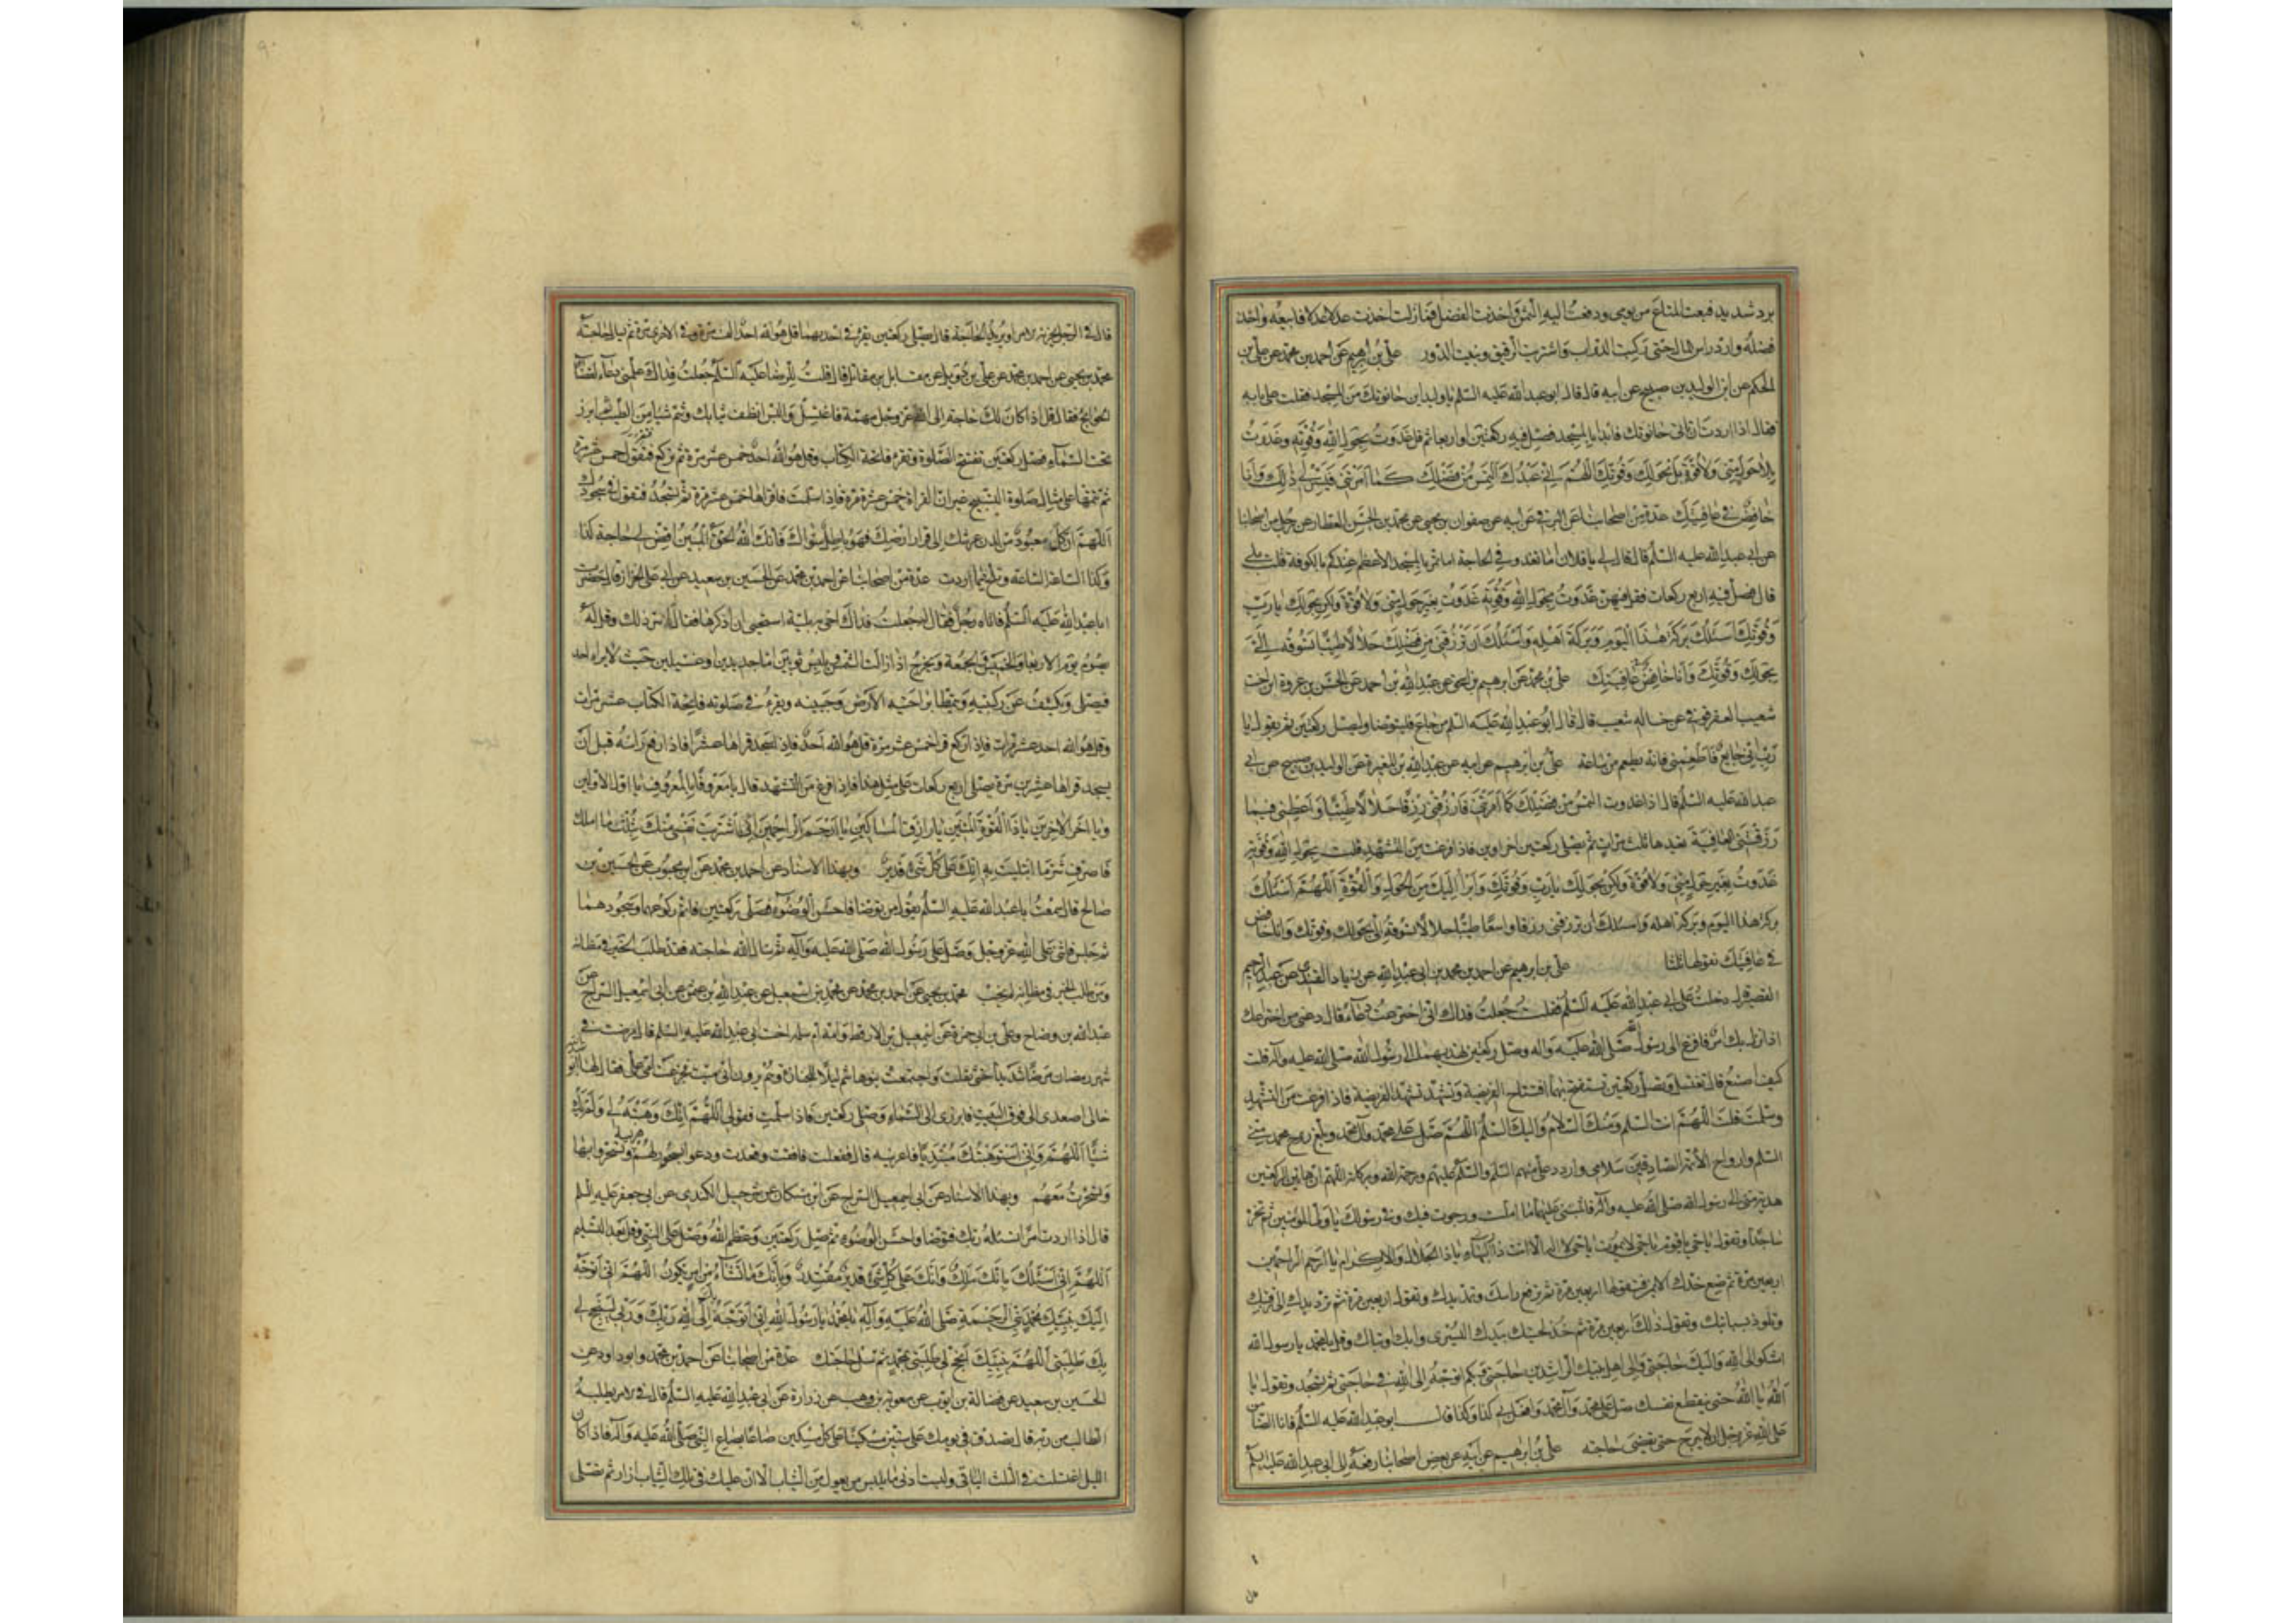 برد شديد فبعت المتاع من يومى ودفعت اليه الثمن واخذت الفضل فما زلت اخذ عدلا عدلا فابيعه واخذ
فضله وارد راس المال حتى ركبت الدواب واشتريت الرقيق وبنيت الدور على بن ابرهيم عن احمد بن محمد عن على بن
الحكم عن ابن الوليد بن صبيح عن ابيه قال قال ابو عبد الله عليه السلم يا وليد اين حانوتك من المسجد فقلت على بابه
فقال اذا اردت ان تاتى حانوتك فابدا بالمسجد فصل فيه ركعتين او اربعا ثم قل غدوت بحول الله وقوته وغدوت
بلا حول منى ولا قوة بل بحولك وقوتك اللهم انى عبدك التمس من فضلك كما امرتنى فيسر لى ذلك وانا
خافض فى عافيتك عدة من اصحابنا عن البرقى عن ابيه عن صفوان بن يحيى عن محمد بن الحسن العطار عن رجل من اصحابنا
عن ابى عبد الله عليه السلم قال قال لى يا فلان اما تغدو فى الحاجة اما تمر بالمسجد الاعظم عندكم بالكوفة قلت بلى
قال فصل فيه اربع ركعات فقل فيهن غدوت بحول الله وقوته غدوت بغير حول منى ولا قوة ولكن بحولك يا رب
وقوتك اسئلك بركة هذا اليوم وبركة اهله واسئلك ان ترزقنى من فضلك حلالا طيبا تسوقه الى
بحولك وقوتك وانا خافض فى عافيتك على بن محمد عن ابرهيم بن اسحق عن عبد الله بن احمد عن الحسن بن عروة ابن اخت
شعيب العقرقوفى عن خاله شعيب قال قال ابو عبد الله عليه السلم من جاع فليتوضا وليصل ركعتين ثم يقول يا
رب انى جايع فاطعمنى فانه يطعم من ساعته على بن ابرهيم عن ابيه عن عبد الله بن المغيرة عن الوليد بن صبيح عن ابى
عبد الله عليه السلم قال اذا غدوت التمس من فضلك كما امرتنى فارزقنى رزقا حلالا طيبا واعطنى فيما
رزقتنى العافية تعيدها ثلث مرات ثم تصلى ركعتين اخراوين فاذا فرغت من التشهد قلت بحول الله وقوته
غدوت بغير حول منى ولا قوة ولكن بحولك يا رب وقوتك وابرا اليك من الحول والقوة اللهم اسئلك
بركة هذا اليوم وبركة اهله واسئلك ان ترزقنى رزقا واسعا طيبا حلالا تسوقه الى بحولك وقوتك وانا خافض
فى عافيتك تقولها ثلثا على بن ابرهيم عن احمد بن محمد بن ابى عبد الله عن زياد القندى عن عبد الرحيم
القصير قال دخلت على ابى عبد الله عليه السلم فقلت جعلت فداك انى اخترعت دعاء قال دعنى من اختراعك
اذا نزل بك امر فافزع الى رسول الله صلى الله عليه واله وصل ركعتين تهديهما الى رسول الله صلى الله عليه وآله قلت
كيف اصنع قال تغتسل وتصلى ركعتين تستفتح بهما افتتاح الفريضة وتشهد تشهد الفريضة فاذا فرغت من التشهد
وسلمت قلت اللهم انت السلم ومنك السلام واليك السلم اللهم صل على محمد وآل محمد وبلغ روح محمد منى
السلم وارواح الائمة الصادقين سلامى واردد على منهم السلم والسلم عليهم ورحمة الله وبركاته اللهم ان هاتين الركعتين
هدية منى الى رسول الله صلى الله عليه وآله فاثبنى عليهما ما املت ورجوت فيك وفى رسولك يا ولى المؤمنين ثم تخر
ساجدا وتقول يا حى يا قيوم يا حى لا يموت يا حى لا اله الا انت يا ذا الجلال والاكرام يا ارحم الراحمين
اربعين مرة ثم ضع خدك الايمن فتقولها اربعين مرة ثم ترفع راسك وتمد يدك وتقول اربعين مرة ثم ترد يدك الى رقبتك
وتلوذ بسبابتك وتقول ذلك اربعين مرة ثم خذ لحيتك بيدك اليسرى وابك او تباك وقل يا محمد يا رسول الله
اشكو الى الله واليك حاجتى والى اهل بيتك الراشدين حاجتى وبكم اتوجه الى الله فى حاجتى ثم تسجد وتقول يا
الله يا الله حتى ينقطع نفسك صل على محمد وآل محمد وافعل بى كذا وكذا قال ابو عبد الله عليه السلم فانا الضامن
على الله عز وجل ان لا يبرح حتى تقضى حاجته على بن ابرهيم عن ابيه عن بعض اصحابنا رفعه الى ابى عبد الله عليه السلم
قال فى الرجل يحزنه الامر او يريد الحاجة قال يصلى ركعتين يقرا فى احديهما قل هو الله احد الف مرة وفى الاخرى مرة ثم يسال حاجته
محمد بن يحيى عن احمد بن محمد عن على بن دويل عن مقاتل بن مقاتل قال قلت للرضا عليه السلم جعلت فداك علمنى دعاء لقضاء
الحوايج فقال قل اذا كان لك حاجة الى الله عز وجل مهمة فاغتسل والبس انظف ثيابك وشم شيا من الطيب ثم ابرز
تحت السماء فصل ركعتين تفتتح الصلوة وتقرا فاتحة الكتاب وقل هو الله احد خمس عشر مرة ثم تركع فتقرا خمس عشرة
ثم تتمها على مثال صلوة التسبيح غير ان القراءة خمس عشرة مرة فاذا سلمت فاقراها خمس عشر مرة ثم تسجد فتقول فى سجودك
اللهم ان كل معبود من لدن عرشك الى قرار ارضك فهو باطل سواك فانك الله الحق المبين اقض لى حاجة كذا
وكذا الساعة الساعة وتلح فيما اردت عدة من اصحابنا عن احمد بن محمد عن الحسين بن سعيد عن ابى على الخزاز قال حضرت
ابا عبد الله عليه السلم فاتاه رجل فقال له جعلت فداك اخى به بلية استحيى ان اذكرها فقال له استر ذلك وقل له
يصوم يوم الاربعا والخميس والجمعة ويخرج اذا زالت الشمس ويلبس ثوبين اما جديدين او غسيلين حيث لا يراه احد
فيصلى ويكشف عن ركبتيه ويتمطا براحتيه الارض وجبينه ويقرء فى صلوته فاتحة الكتاب عشر مرات
وقل هو الله احد عشر مرات فاذا ركع قرا خمس عشر مرة قل هو الله احد فاذا سجد قراها عشرا فاذا رفع راسه قبل ان
يسجد قراها عشرين مرة يصلى اربع ركعات على مثل هذا فاذا فرغ من التشهد قال يا معروفا بالمعروف يا اول الاولين
ويا اخر الاخرين يا ذا القوة المتين يا رازق المساكين يا ارحم الراحمين انى اشتريت نفسى منك بثلث ما املك
فاصرف شر ما ابتليت به انك على كل شىء قدير وبهذا الاسناد عن احمد بن محمد عن ابن محبوب عن الحسين بن
صالح قال سمعت ابا عبد الله عليه السلم يقول من توضا فاحسن الوضوء وصلى ركعتين فاتم ركوعهما وسجودهما
ثم جلس فاثنى على الله عز وجل وصلى على رسول الله صلى الله عليه وآله ثم سال الله حاجته فقد طلب الخير فى مظانه
ومن طلب الخير فى مظانه لم يخب محمد بن يحيى عن احمد بن محمد عن محمد بن اسمعيل عن عبد الله بن عثمن عن ابى اسمعيل السراج عن
عبد الله بن وضاح وعلى بن ابى حمزة عن اسمعيل بن الارقط وامه ام سلمه اخت ابى عبد الله عليه السلم قال مرضت فى
شهر رمضان مرضا شديدا حتى ثقلت واجتمعت بنو هاشم ليلا للجنازة وهم يرون انى ميت فجزعت امى على فقال لها ابو عبد الله
خالى اصعدى الى فوق البيت فابرزى الى السماء وصلى ركعتين فاذا سلمت فقولى اللهم انك وهبته لى ولم يك
شيا اللهم وانى استوهبتك مبتديا فاعرنيه قال ففعلت فافقت وقعدت ودعوا بسحور لهم هريسة وتسحروا بها
وتسحرت معهم وبهذا الاسناد عن ابى اسمعيل السراج عن ابن مسكان عن شرحبيل الكندى عن ابى جعفر عليه السلم
قال اذا اردت امرا تسئله ربك فتوضا واحسن الوضوء ثم صل ركعتين وعظم الله وصل على النبى وقل بعد التسليم
اللهم انى اسئلك بانك ملك وانك على كل شىء قدير مقتدر وبانك ما تشاء من امر يكون اللهم انى اتوجه
اليك بنبيك محمد نبى الرحمة صلى الله عليه وآله يا محمد يا رسول الله انى اتوجه بك الى الله ربك وربى لينجح لى
بك طلبتى اللهم بنبيك انجح لى طلبتى بمحمد ثم سل حاجتك عدة من اصحابنا عن احمد بن محمد وابو داود عن
الحسين بن سعيد عن فضالة بن ايوب عن معوية بن وهب عن زرارة عن ابى عبد الله عليه السلم قال فى الامر يطلبه
الطالب من ربه قال تصدق فى يومك على ستين مسكينا على كل مسكين صاعا بصاع النبى صلى الله عليه وآله فاذا كان
الليل اغتسلت فى الثلث الباقى ولبست ادنى ما يلبس من يعول من الثياب الا ان عليك فى تلك الثياب ازار ثم تصلى